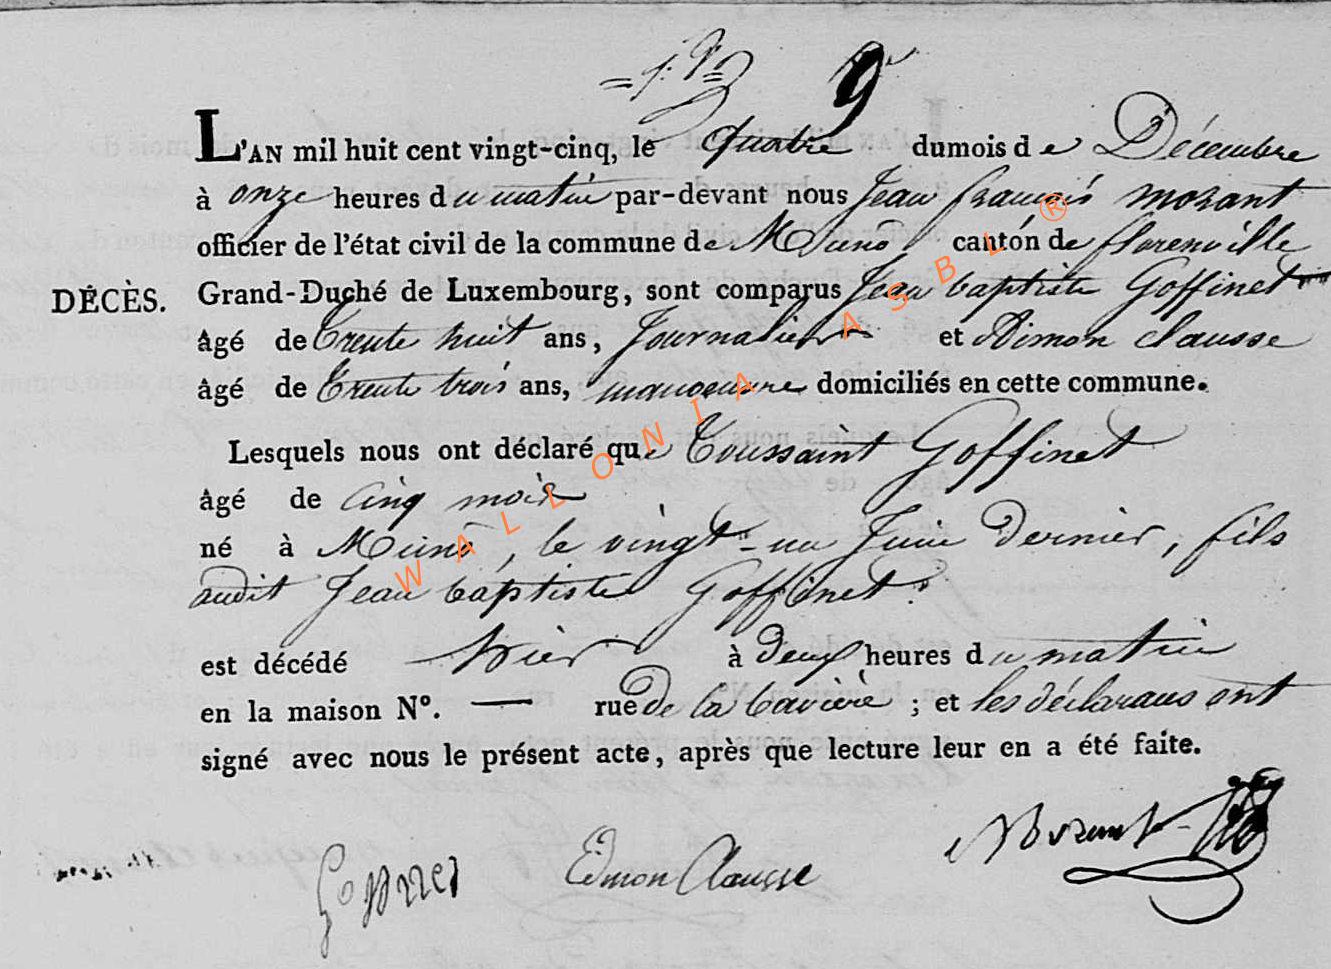 9
L'AN mil huit cent vingt-cinq, le quatre dumois d e Décembre
à onze heures d u matin par-devant nous Jean françois morant
officier de l'état civil de la commune de Muno canton de florenville
DÉCÈS. Grand-Duché de Luxembourg, sont comparus Jean baptiste Goffinet
âgé de Trente huit ans, Journalier et Aimon clausse
âgé de Trente trois ans, manoeuvre domiciliés en cette commune.
Lesquels nous ont déclaré que Toussaint Goffinet
âgé de cinq mois
né à Muno, le vingt-un Juin dernier, fils
audit Jean baptiste Goffinet.
est décédé hier à deux heures d u matin
en la maison N°. — rue de la bavière ; et les déclarans ont
signé avec nous le présent acte, après que lecture leur en a été faite.
Goffinet Edmon Clausse Morant
WALLONIA ASBL ®